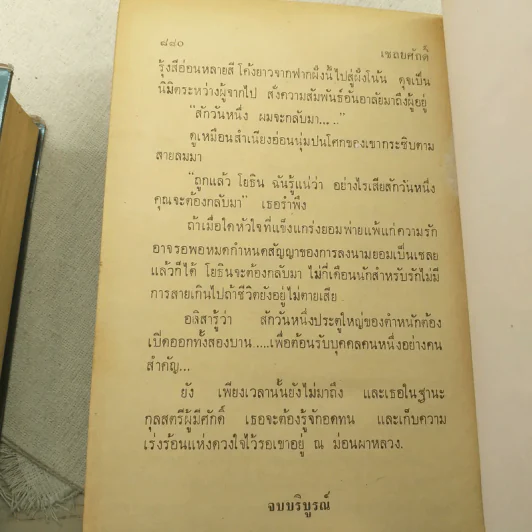 ๘๘๐
เชลยศักดิ์
รุ้งสีอ่อนหลายสี โค้งยาวจากฟากฝั่งนี้ไปสู่ฝั่งโน้น ดุจเป็น
นิมิตระหว่างผู้จากไป สั่งความสัมพันธ์อันอาลัยมาถึงผู้อยู่
"สักวันหนึ่ง ผมจะกลับมา....."
ดูเหมือนสำเนียงอ่อนนุ่มปนโศกของเขากระซิบตาม
สายลมมา
"ถูกแล้ว โยธิน ฉันรู้แน่ว่า อย่างไรเสียสักวันหนึ่ง
คุณจะต้องกลับมา" เธอรำพึง
ถ้าเมื่อใดหัวใจที่แข็งแกร่งยอมพ่ายแพ้แก่ความรัก
อาจรอพอหมดกำหนดสัญญาของการลงนามยอมเป็นเชลย
แล้วก็ได้ โยธินจะต้องกลับมา ไม่กี่เดือนนักสำหรับรักไม่มี
การสายเกินไปถ้าชีวิตยังอยู่ไม่ตายเสีย
อลิสารู้ว่า สักวันหนึ่งประตูใหญ่ของตำหนักต้อง
เปิดออกทั้งสองบาน....เพื่อต้อนรับบุคคลคนหนึ่งอย่างคน
สำคัญ...
ยัง เพียงเวลานั้นยังไม่มาถึง และเธอในฐานะ
กุลสตรีผู้มีศักดิ์ เธอจะต้องรู้จักอดทน และเก็บความ
เร่งร้อนแห่งดวงใจไว้รอเขาอยู่ ณ ม่อนผาหลวง.
จบบริบูรณ์